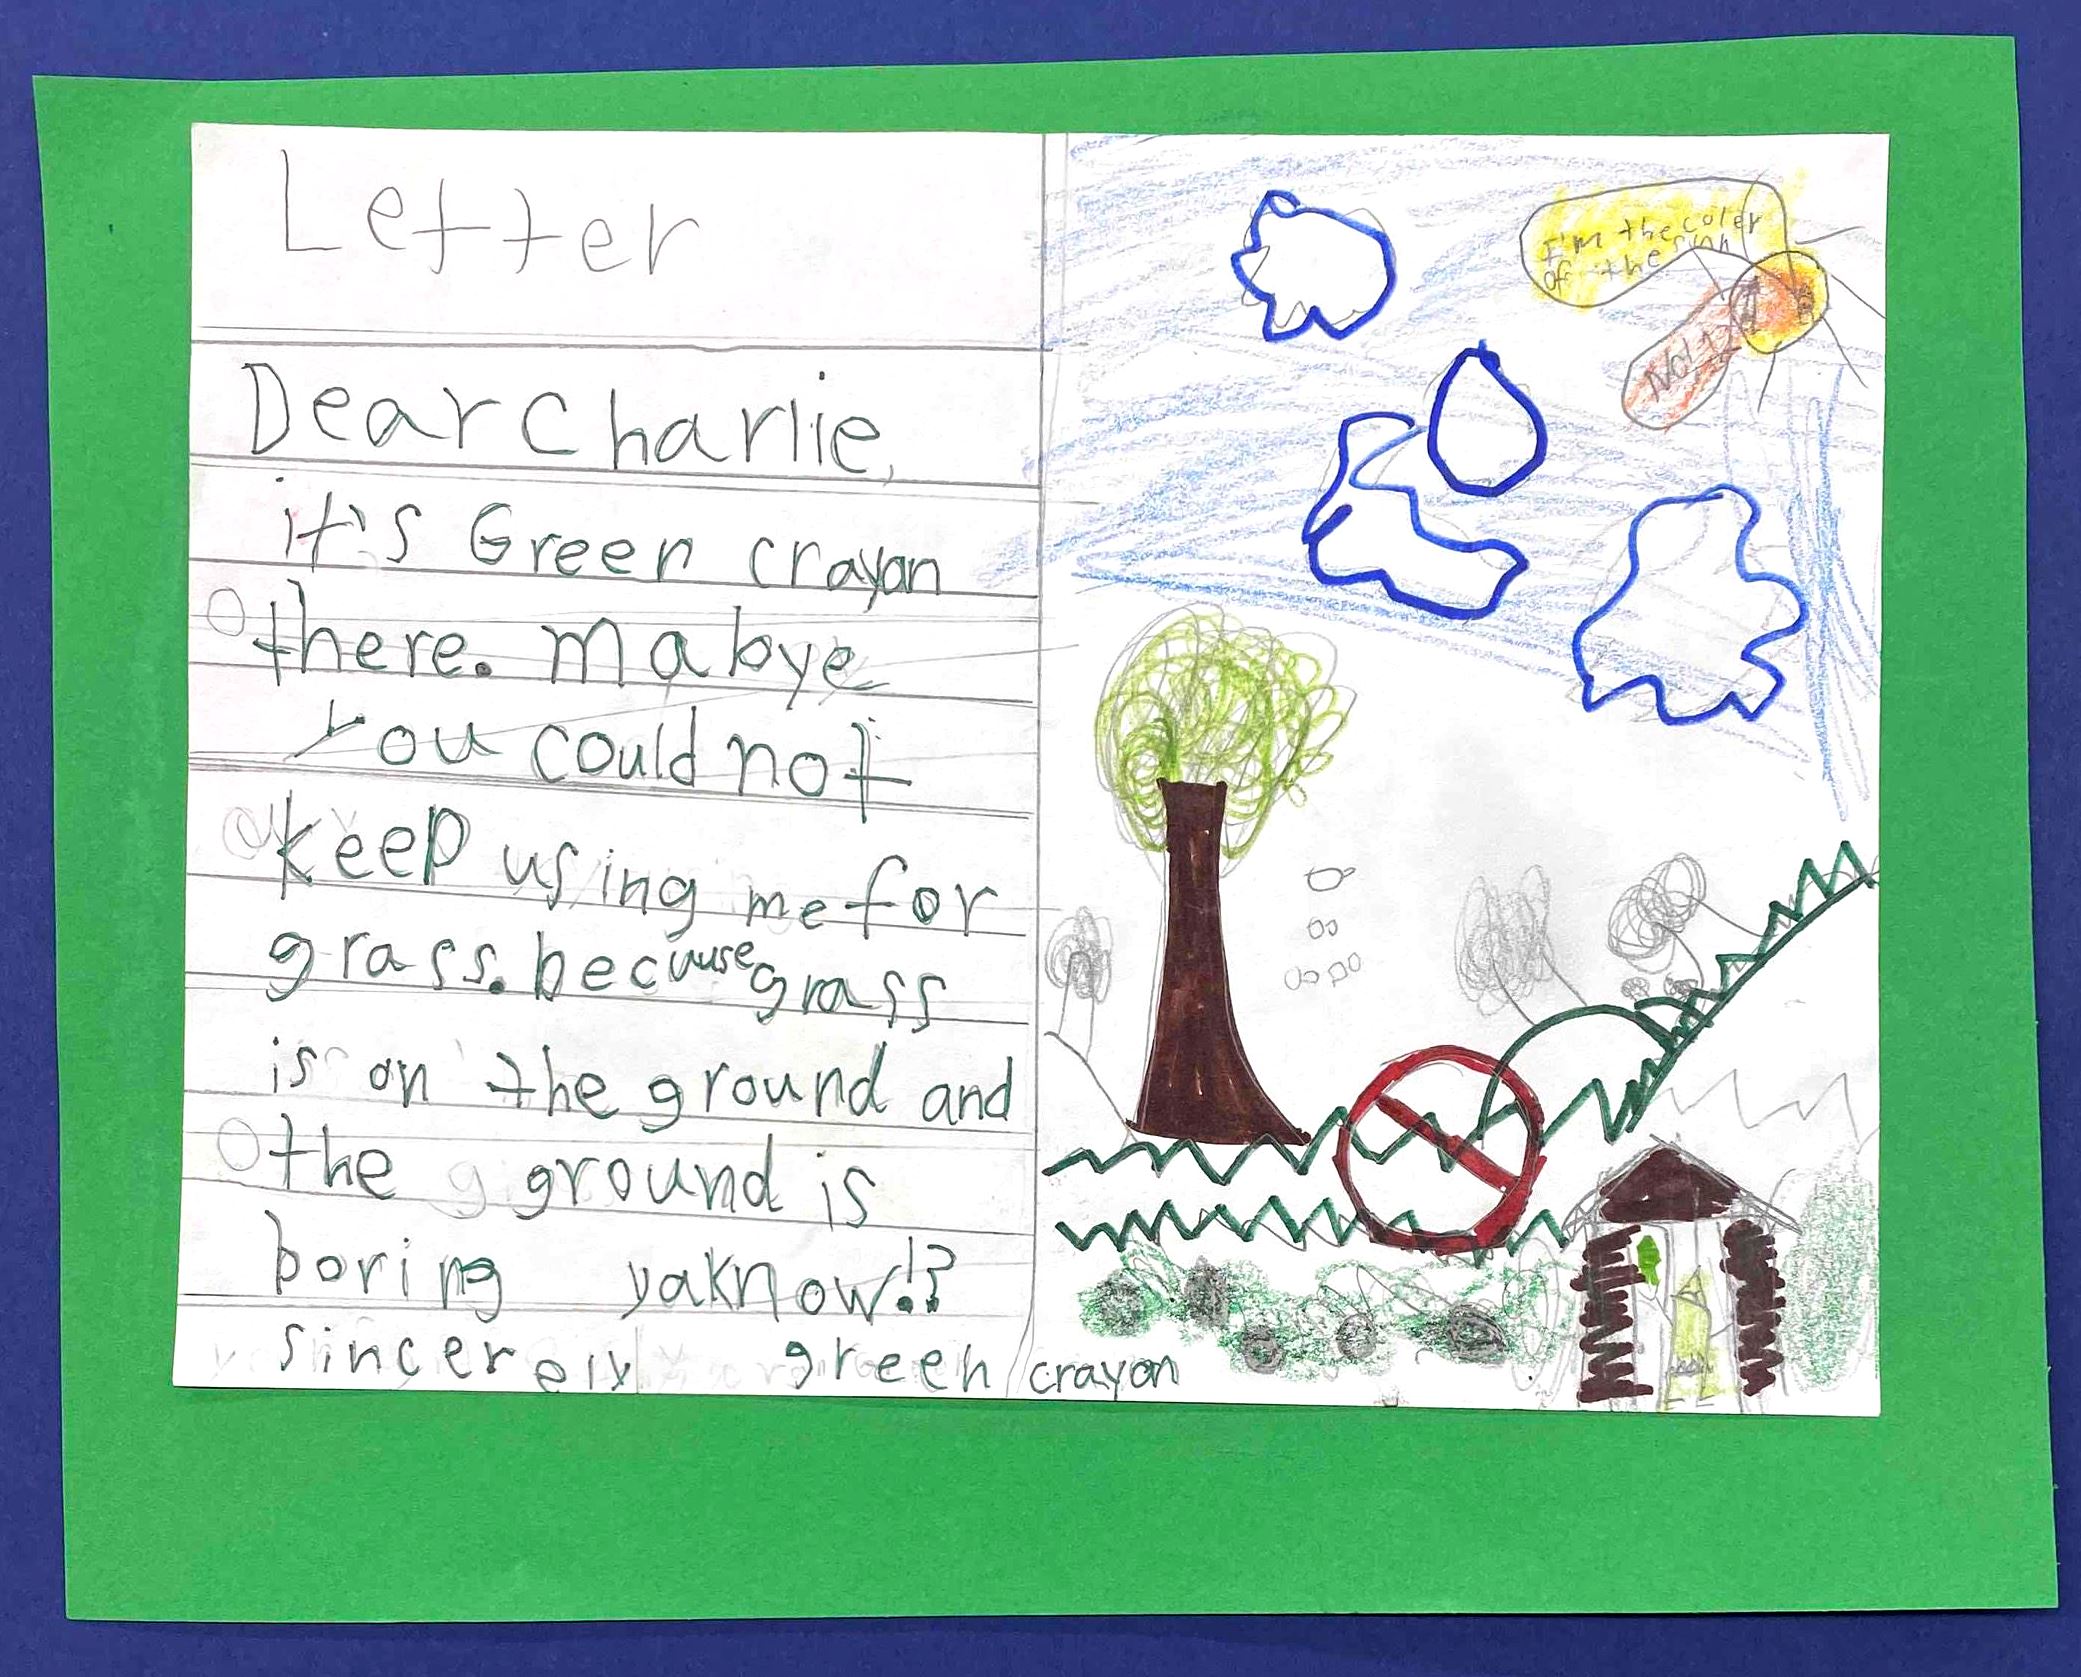 Letter
Dear Charlie,
it's Green crayon
there. mabye
You could not
keep using me for
grass. because grass
is on the ground and
the ground is
boring yaknow!?
sincerely green crayon
I'm the coler
of the sun
Not